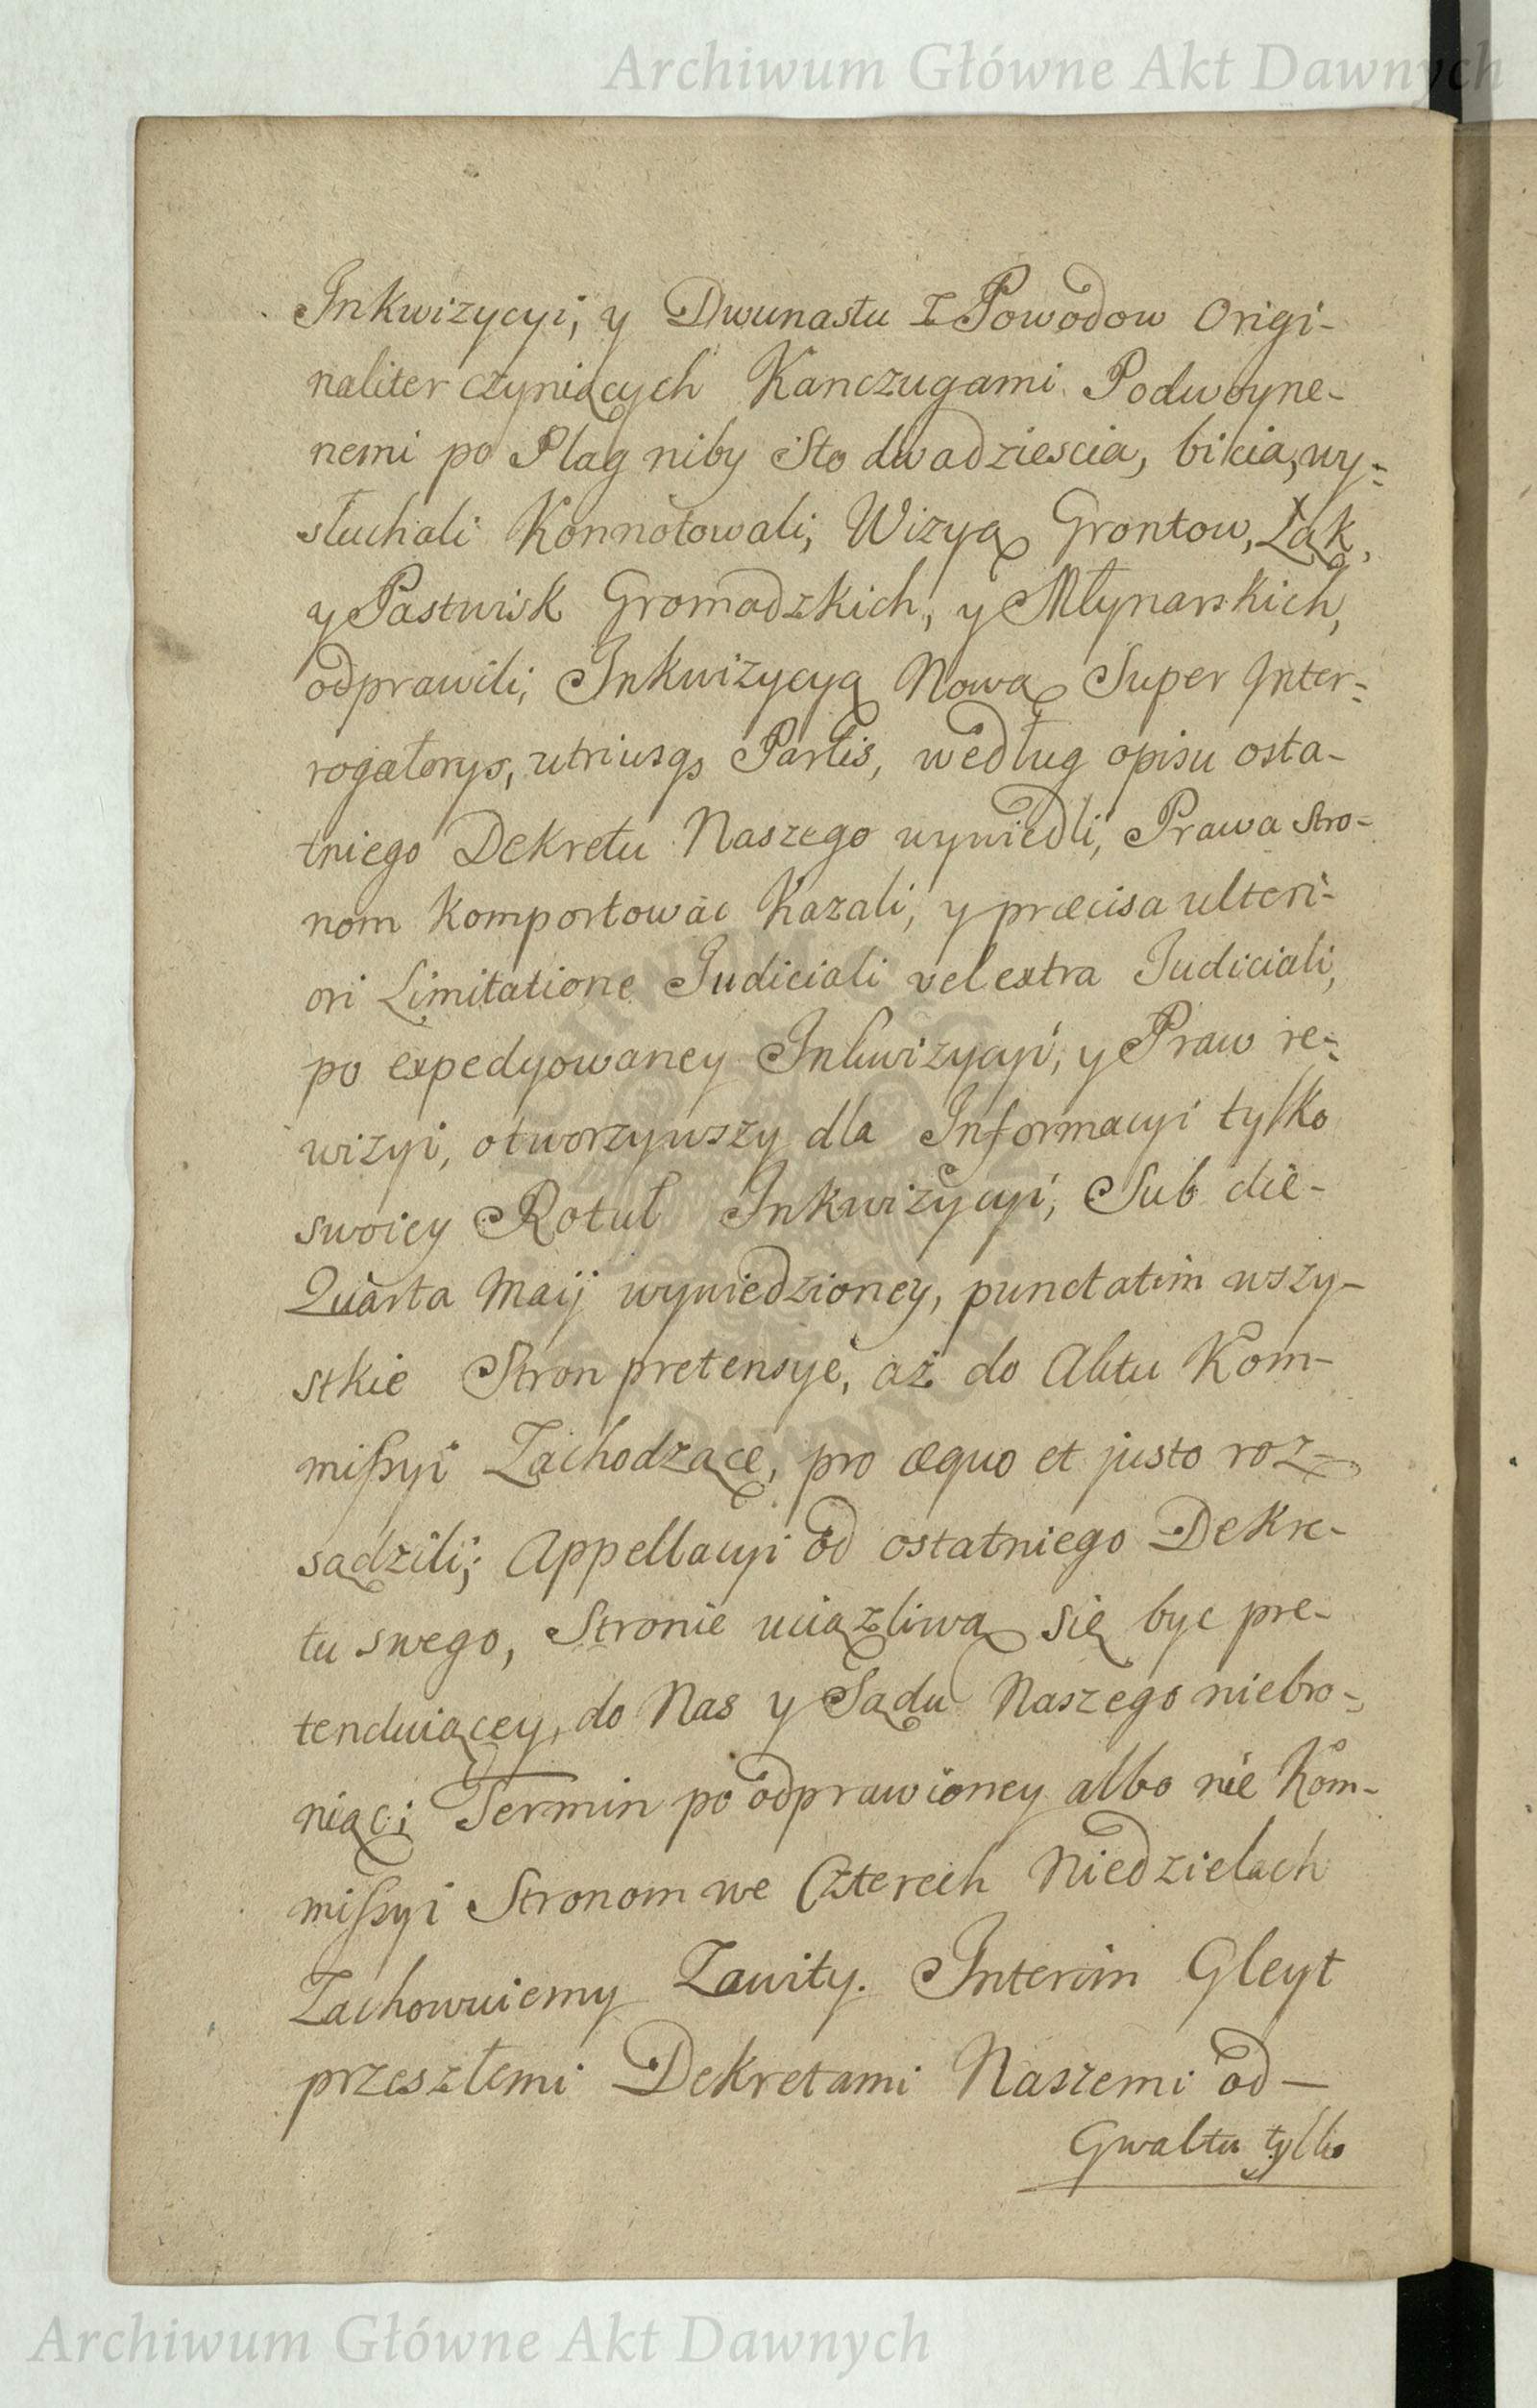 Archiwum Główne Akt Dawnych
Inkwizycyi, y Dwunastu z Powodow Origi-
naliter czyniących Kanczugami Podwoyne-
nemi po Plag niby Sto dwadziescia, bicia, wy-
słuchali Konnotowali, Wizyą Grontow, Łąk,
y Pastwisk Gromadzkich, y Młynarskich,
odprawili, Inkwizycyą Nową Super Inter-
rogatorys, utriusqs Partis, według opisu osta-
tniego Dekretu Naszego wywiedli, Prawa Stro-
nom Komportowac Kazali, y præcisa ulteri-
ori Limitatione Judiciali vel extra Judiciali,
po expedyowaney Inkwizycyi, y Praw re-
wizyi, otworzywszy dla Informacyi tylko
swoicy Rotuł Inkwizycyi, Sub die-
Quarta Maij wywiedzioney, punctatim wszy-
stkie Stron pretensye, aż do Aktu Kom-
missyi Zachodzące, pro æquo et justo roz-
sądzili; Appellacyi od ostatniego Dekre-
tu swego, Stronie uciązliwą się byc pre-
tenduiącey, do Nas y Sądu Naszego niebro-
niąc; Termin po odprawioney albo nie Kom-
missyi Stronom we Czterech Niedzielach
Zachowuiemy Zawity. Interim Gleyt
przeszłemi Dekretami Naszemi od-
Gwałtu tylko
Archiwum Główne Akt Dawnych